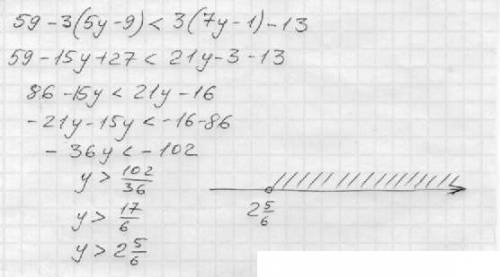 59 - 3(5y - 9) < 3(7y - 1) - 13
59 - 15y + 27 < 21y - 3 - 13
86 - 15y < 21y - 16
- 21y - 15y < -16 - 86
- 36y < - 102
y > 102/36
y > 17/6
y > 2 5/6
2 5/6